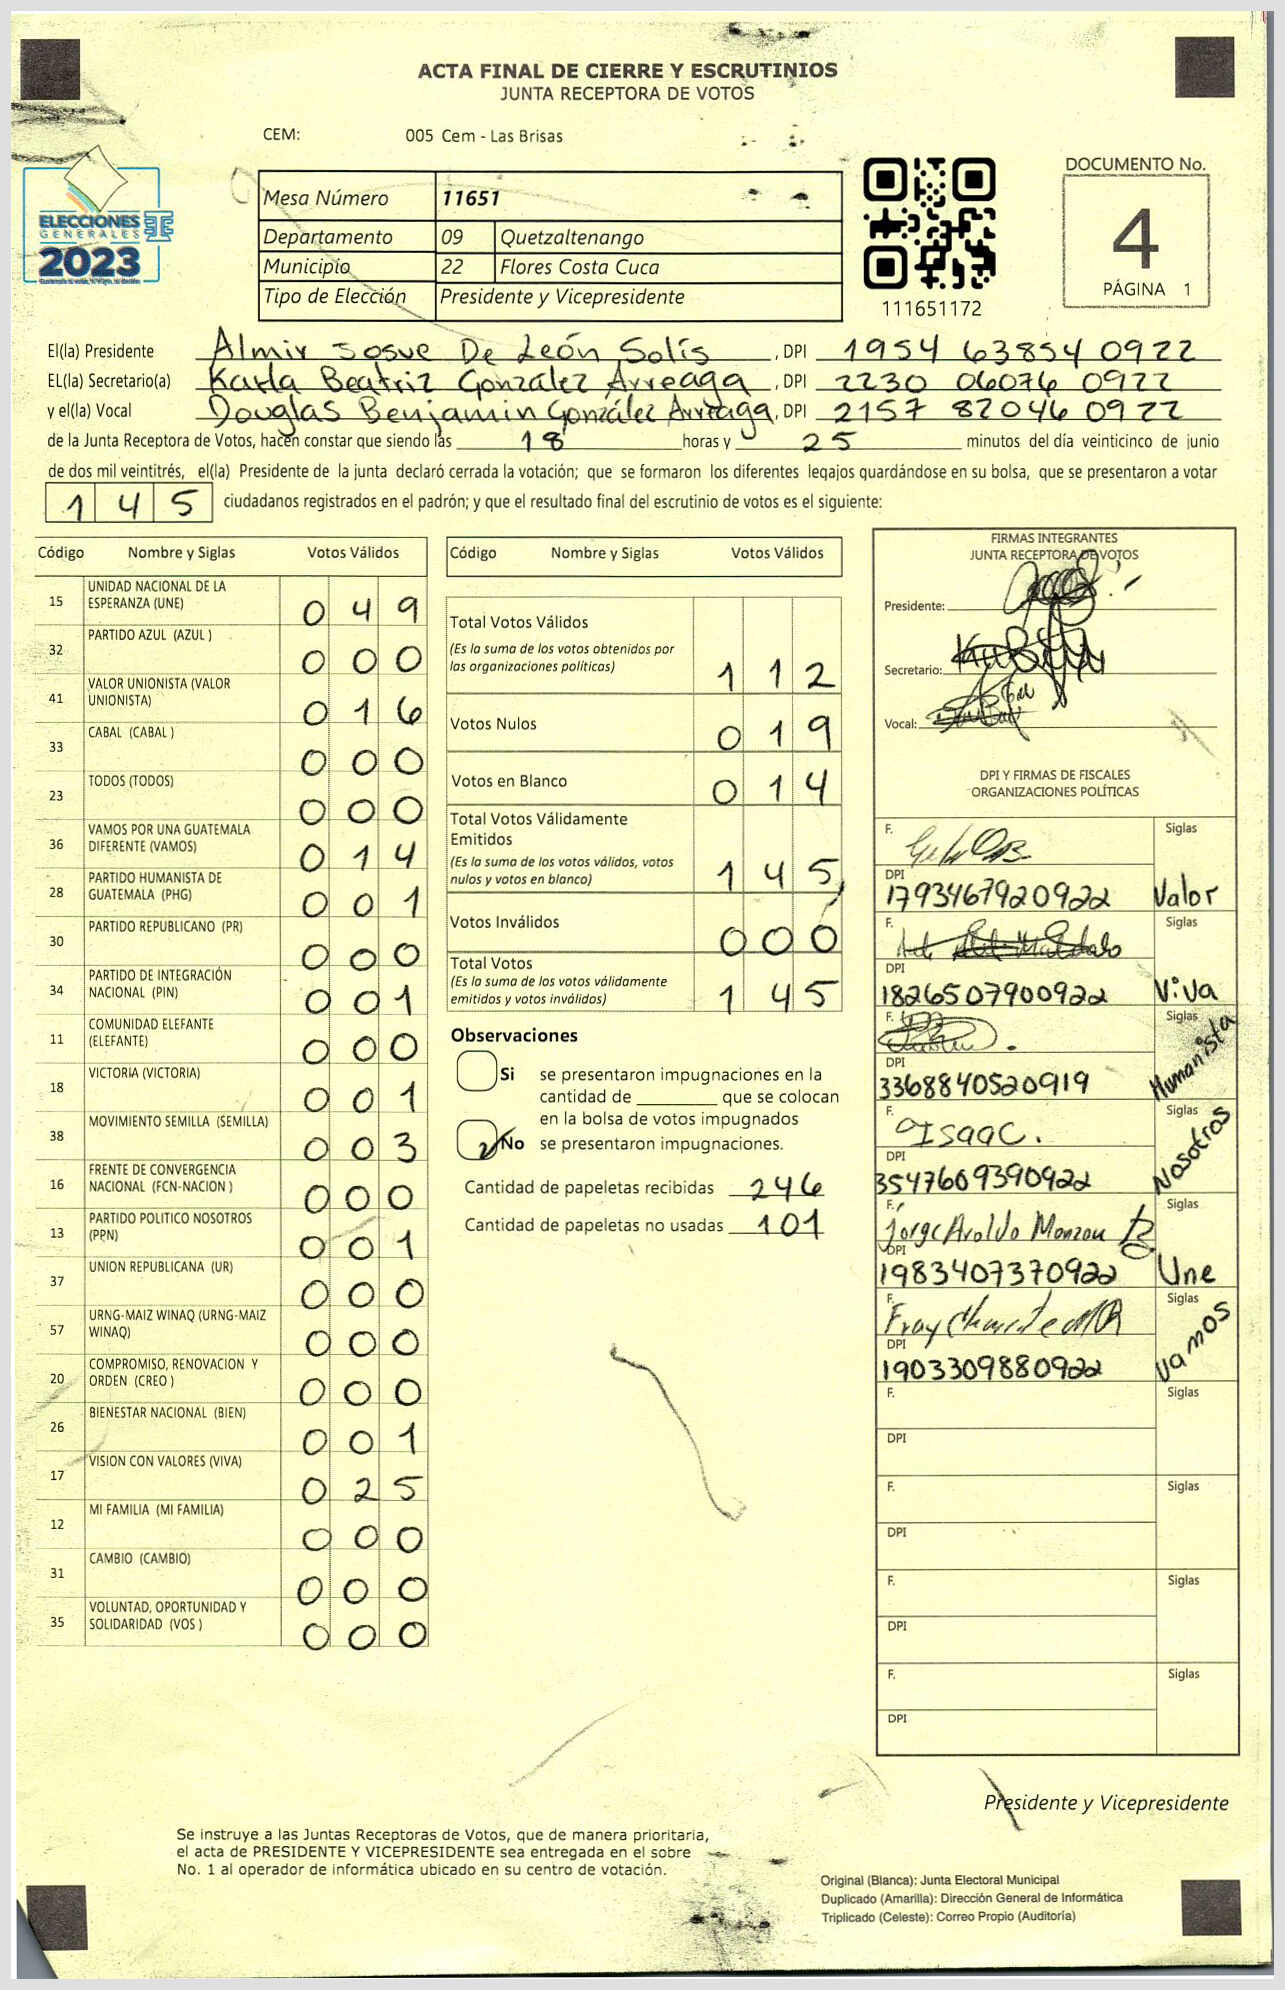 ACTA FINAL DE CIERRE Y ESCRUTINIOS
JUNTA RECEPTORA DE VOTOS
CEM: 005 Cem - Las Brisas
ELECCIONES
GENERALES
2023
Mesa Número 11651
Departamento 09 Quetzaltenango
Municipio 22 Flores Costa Cuca
Tipo de Elección Presidente y Vicepresidente
111651172
DOCUMENTO No.
4
PÁGINA 1
El(la) Presidente Almir Josue De León Solís , DPI 1954 63854 0922
EL(la) Secretario(a) Karla Beatriz González Arreaga , DPI 2230 06076 0922
y el(la) Vocal Douglas Benjamin González Arreaga , DPI 2157 82046 0922
de la Junta Receptora de Votos, hacen constar que siendo las 18 horas y 25 minutos del día veinticinco de junio
de dos mil veintitrés, el(la) Presidente de la junta declaró cerrada la votación; que se formaron los diferentes legajos quardándose en su bolsa, que se presentaron a votar
145 ciudadanos registrados en el padrón; y que el resultado final del escrutinio de votos es el siguiente:
Código Nombre y Siglas Votos Válidos
15 UNIDAD NACIONAL DE LA ESPERANZA (UNE) 049
32 PARTIDO AZUL (AZUL ) 000
41 VALOR UNIONISTA (VALOR UNIONISTA) 016
33 CABAL (CABAL ) 000
23 TODOS (TODOS) 000
36 VAMOS POR UNA GUATEMALA DIFERENTE (VAMOS) 014
28 PARTIDO HUMANISTA DE GUATEMALA (PHG) 001
30 PARTIDO REPUBLICANO (PR) 000
34 PARTIDO DE INTEGRACIÓN NACIONAL (PIN) 001
11 COMUNIDAD ELEFANTE (ELEFANTE) 000
18 VICTORIA (VICTORIA) 001
38 MOVIMIENTO SEMILLA (SEMILLA) 003
16 FRENTE DE CONVERGENCIA NACIONAL (FCN-NACION ) 000
13 PARTIDO POLITICO NOSOTROS (PPN) 001
37 UNION REPUBLICANA (UR) 000
57 URNG-MAIZ WINAQ (URNG-MAIZ WINAQ) 000
20 COMPROMISO, RENOVACION Y ORDEN (CREO ) 000
26 BIENESTAR NACIONAL (BIEN) 001
17 VISION CON VALORES (VIVA) 025
12 MI FAMILIA (MI FAMILIA) 000
31 CAMBIO (CAMBIO) 000
35 VOLUNTAD, OPORTUNIDAD Y SOLIDARIDAD (VOS ) 000
Código Nombre y Siglas Votos Válidos
Total Votos Válidos
(Es la suma de los votos obtenidos por
las organizaciones políticas) 112
Votos Nulos 019
Votos en Blanco 014
Total Votos Válidamente
Emitidos
(Es la suma de los votos válidos, votos
nulos y votos en blanco) 145
Votos Inválidos 000
Total Votos
(Es la suma de los votos válidamente
emitidos y votos inválidos) 145
Observaciones
Si se presentaron impugnaciones en la
cantidad de ________ que se colocan
en la bolsa de votos impugnados
No se presentaron impugnaciones.
Cantidad de papeletas recibidas 246
Cantidad de papeletas no usadas 101
FIRMAS INTEGRANTES
JUNTA RECEPTORA DE VOTOS
Presidente:
Secretario:
Vocal:
DPI Y FIRMAS DE FISCALES
ORGANIZACIONES POLÍTICAS
F. Siglas
DPI
1793467920922 Valor
F. Siglas
DPI
1826507900922 Viva
F. Siglas
DPI
3368840520919 Humanista
F. Isaac. Siglas
DPI
3547609390922 Nosotros
F. Jorge Aroldo Monzon Siglas
DPI
1983407370922 Une
F. Fray Siglas
DPI
1903309880922 Vamos
F. Siglas
DPI
F. Siglas
DPI
F. Siglas
DPI
F. Siglas
DPI
Presidente y Vicepresidente
Se instruye a las Juntas Receptoras de Votos, que de manera prioritaria,
el acta de PRESIDENTE Y VICEPRESIDENTE sea entregada en el sobre
No. 1 al operador de informática ubicado en su centro de votación.
Original (Blanca): Junta Electoral Municipal
Duplicado (Amarilla): Dirección General de Informática
Triplicado (Celeste): Correo Propio (Auditoría)